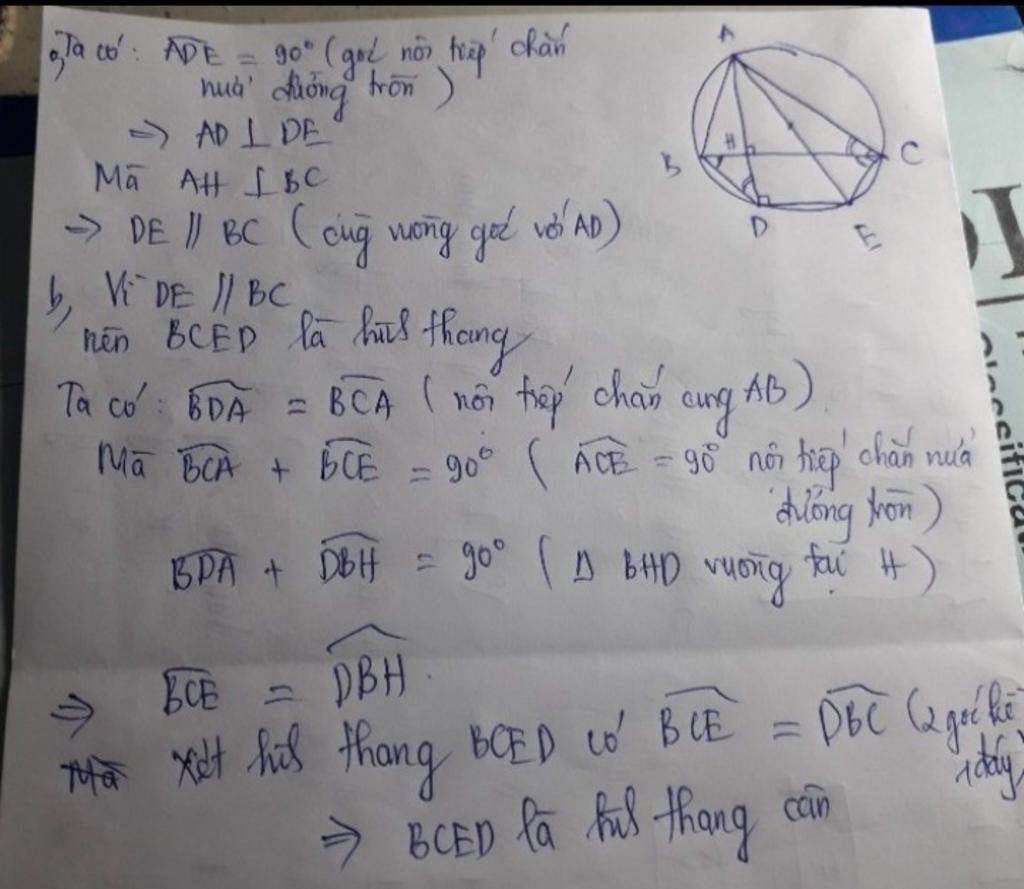 a, Ta có: ADE = 90° (góc nội tiếp chắn
nửa đường tròn)
=> AD ⊥ DE
Mà AH ⊥ BC
=> DE // BC (cùg vuông góc với AD)
b, Vì DE // BC
nên BCED là hìh thang
Ta có: BDA = BCA (nội tiếp chắn cung AB)
Mà BCA + BCE = 90° (ACE = 90° nội tiếp chắn nửa
đường tròn)
BDA + DBH = 90° (Δ BHD vuông tại H)
=> BCE = DBH.
xét hìh thang BCED có BCE = DBC (2 góc kề
1 đáy)
=> BCED là hìh thang cân
A
B
H
C
D
E